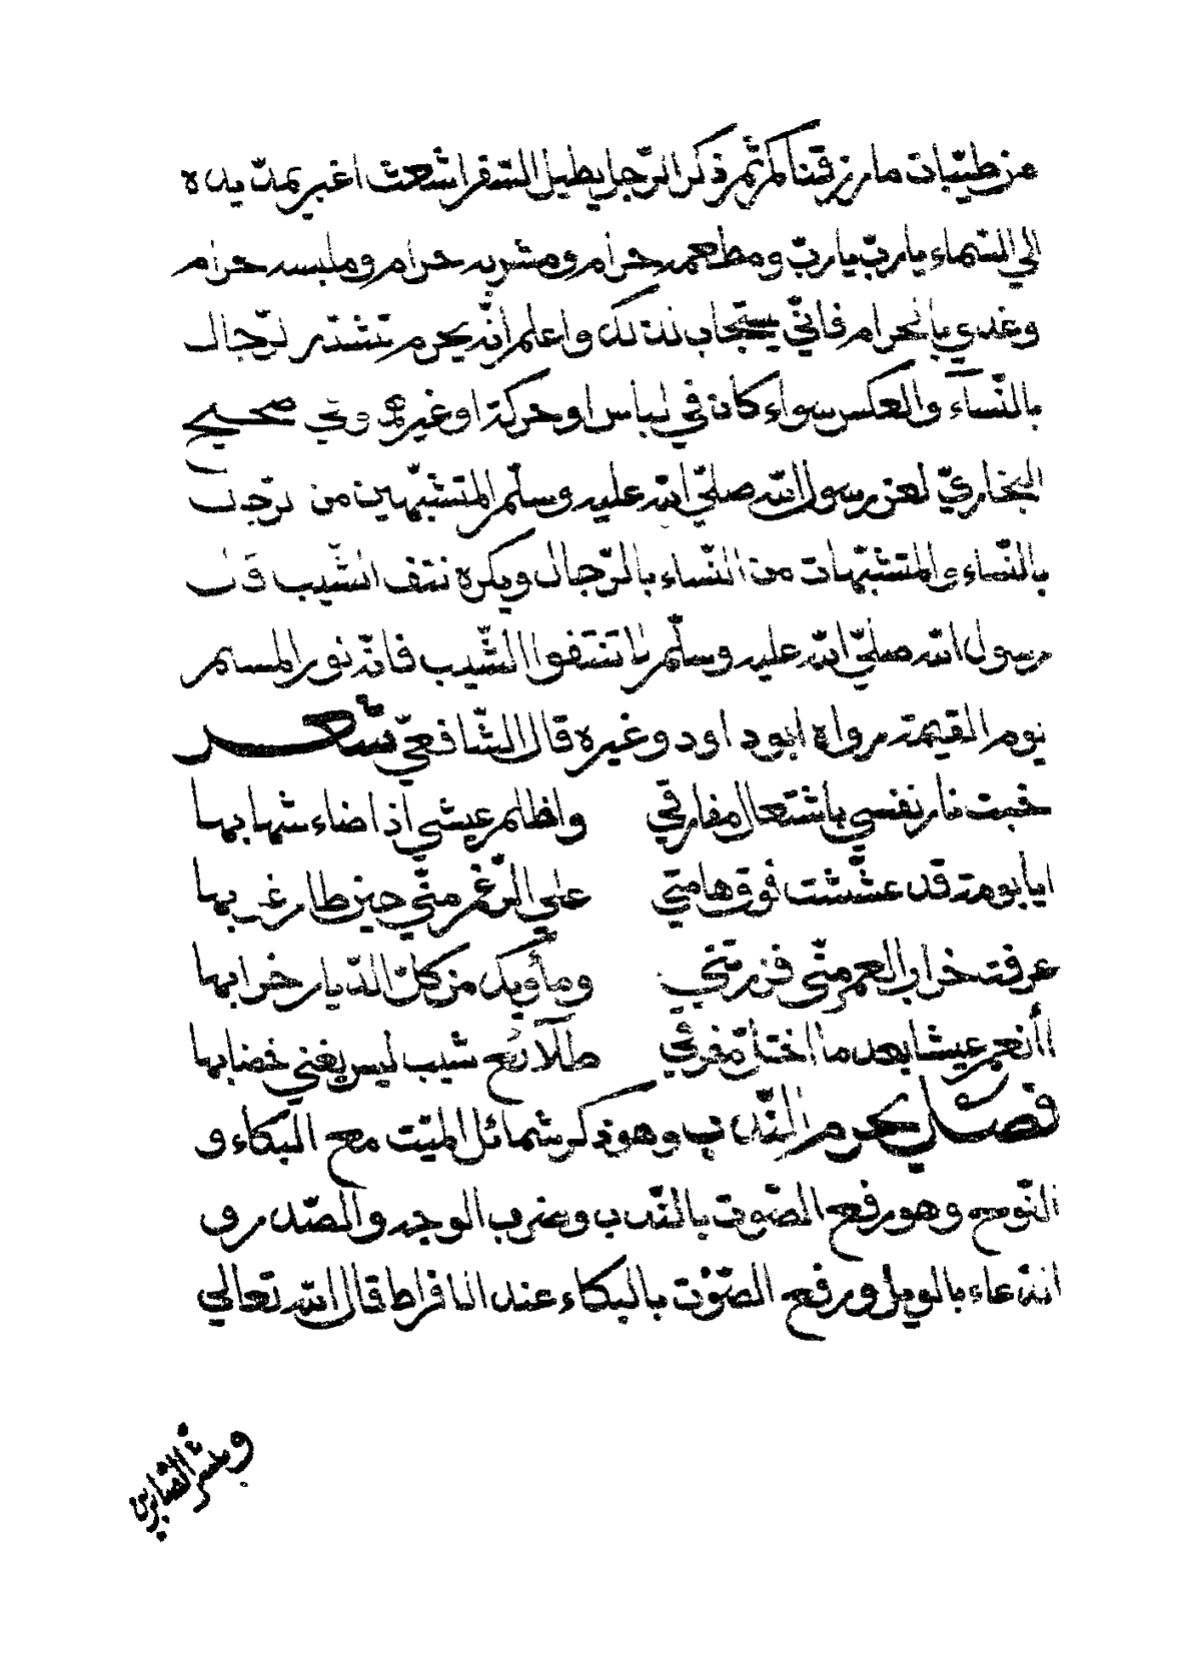 من طيّبات ما رزقناكم ثم ذكر الرّجل يطيل السّفر اشعث اغبر يمدّ يده
الي السّماء يا ربّ يا ربّ ومطعمه حرام ومشربه حرام وملبسه حرام
وغدي بالحرام فانّي يستجاب لذلك واعلم انّه يحرم تشبّه الرّجال
بالنّسآء والعكس سواء كان في لباس او حركة او غيرهما وفي صحيح
البخاريّ لعن رسول الله صلّي الله عليه وسلّم المتشبّهين من الرّجال
بالنّساء والمتشبّهات من النّساء بالرّجال ويكره نتف الشّيب قال
رسول الله صلّي الله عليه وسلّم لا تنتفوا الشّيب فانّه نور المسلم
يوم القيمة رواه ابو داود وغيره قال الشّافعيّ شعر
خبت نار نفسي باشتعال مفارقي واظلم عيشي اذا ضاء شهابها
ايا بومة قد عشّشت فوق هامتي علي الرّغم منّي حين طار غرابها
عرفت خراب العمر منّي فزرتني ومأويك من كلّ الدّيار خرابها
أأنعم عيشا بعد ما اختلّ مفرقي طلآئع شيب ليس يغني خضابها
فصل يحرم النّدب وهو ذكر شمائل الميّت مع البكاء و
النّوح وهو رفع الصّوت بالنّدب وضرب الوجه والصّدر و
الدّعاء بالويل ورفع الصّوت بالبكاء عند الافراط قال الله تعالي
وبشّر الصّابرين